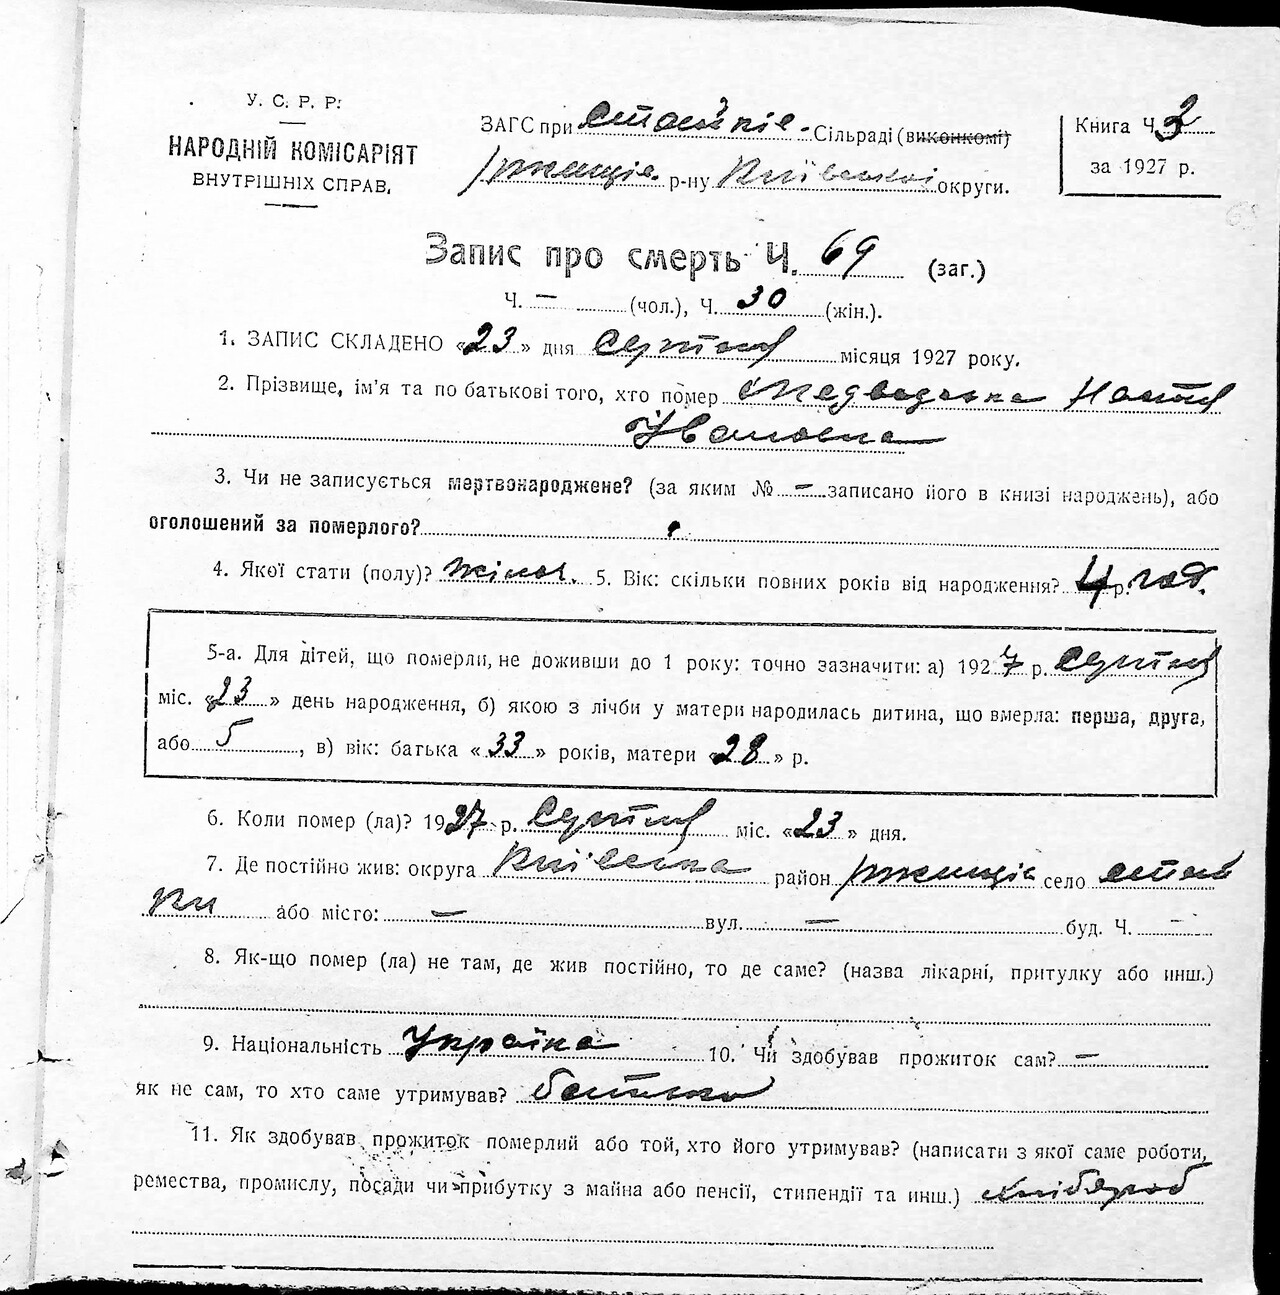 У. С. Р. Р.
НАРОДНІЙ КОМІСАРІЯТ
ВНУТРІШНІХ СПРАВ,
ЗАГС при Стайків. Сільраді (виконкомі)
Ржищів. р-ну Київської округи.
Книга Ч. 3
за 1927 р.
Запис про смерть Ч. 69 (заг.)
Ч. — (чол.), Ч. 30 (жін.).
1. ЗАПИС СКЛАДЕНО «23» дня Серпня місяця 1927 року.
2. Прізвище, ім'я та по батькові того, хто помер Медведська Настя
Івановна
3. Чи не записується мертвонароджене? (за яким № — записано його в книзі народжень), або
оголошений за померлого?
4. Якої стати (полу)? жіноч. 5. Вік: скільки повних років від народження? 4 р. год.
5-а. Для дітей, що померли, не доживши до 1 року: точно зазначити: а) 1927 р. Серпня
міс. «23» день народження, б) якою з лічби у матери народилась дитина, що вмерла: перша, друга,
або 5, в) вік: батька «33» років, матери «28» р.
6. Коли помер (ла)? 1927 р. Серпня міс. «23» дня.
7. Де постійно жив: округа Київська район Ржищів село Стай
ки або місто: — вул. — буд. Ч. —
8. Як-що помер (ла) не там, де жив постійно, то де саме? (назва лікарні, притулку або инш.)
9. Національність Україка 10. Чи здобував прожиток сам? —
як не сам, то хто саме утримував? батько
11. Як здобував прожиток померлий або той, хто його утримував? (написати з якої саме роботи,
ремества, промислу, посади чи прибутку з майна або пенсії, стипендії та инш.) хлібороб